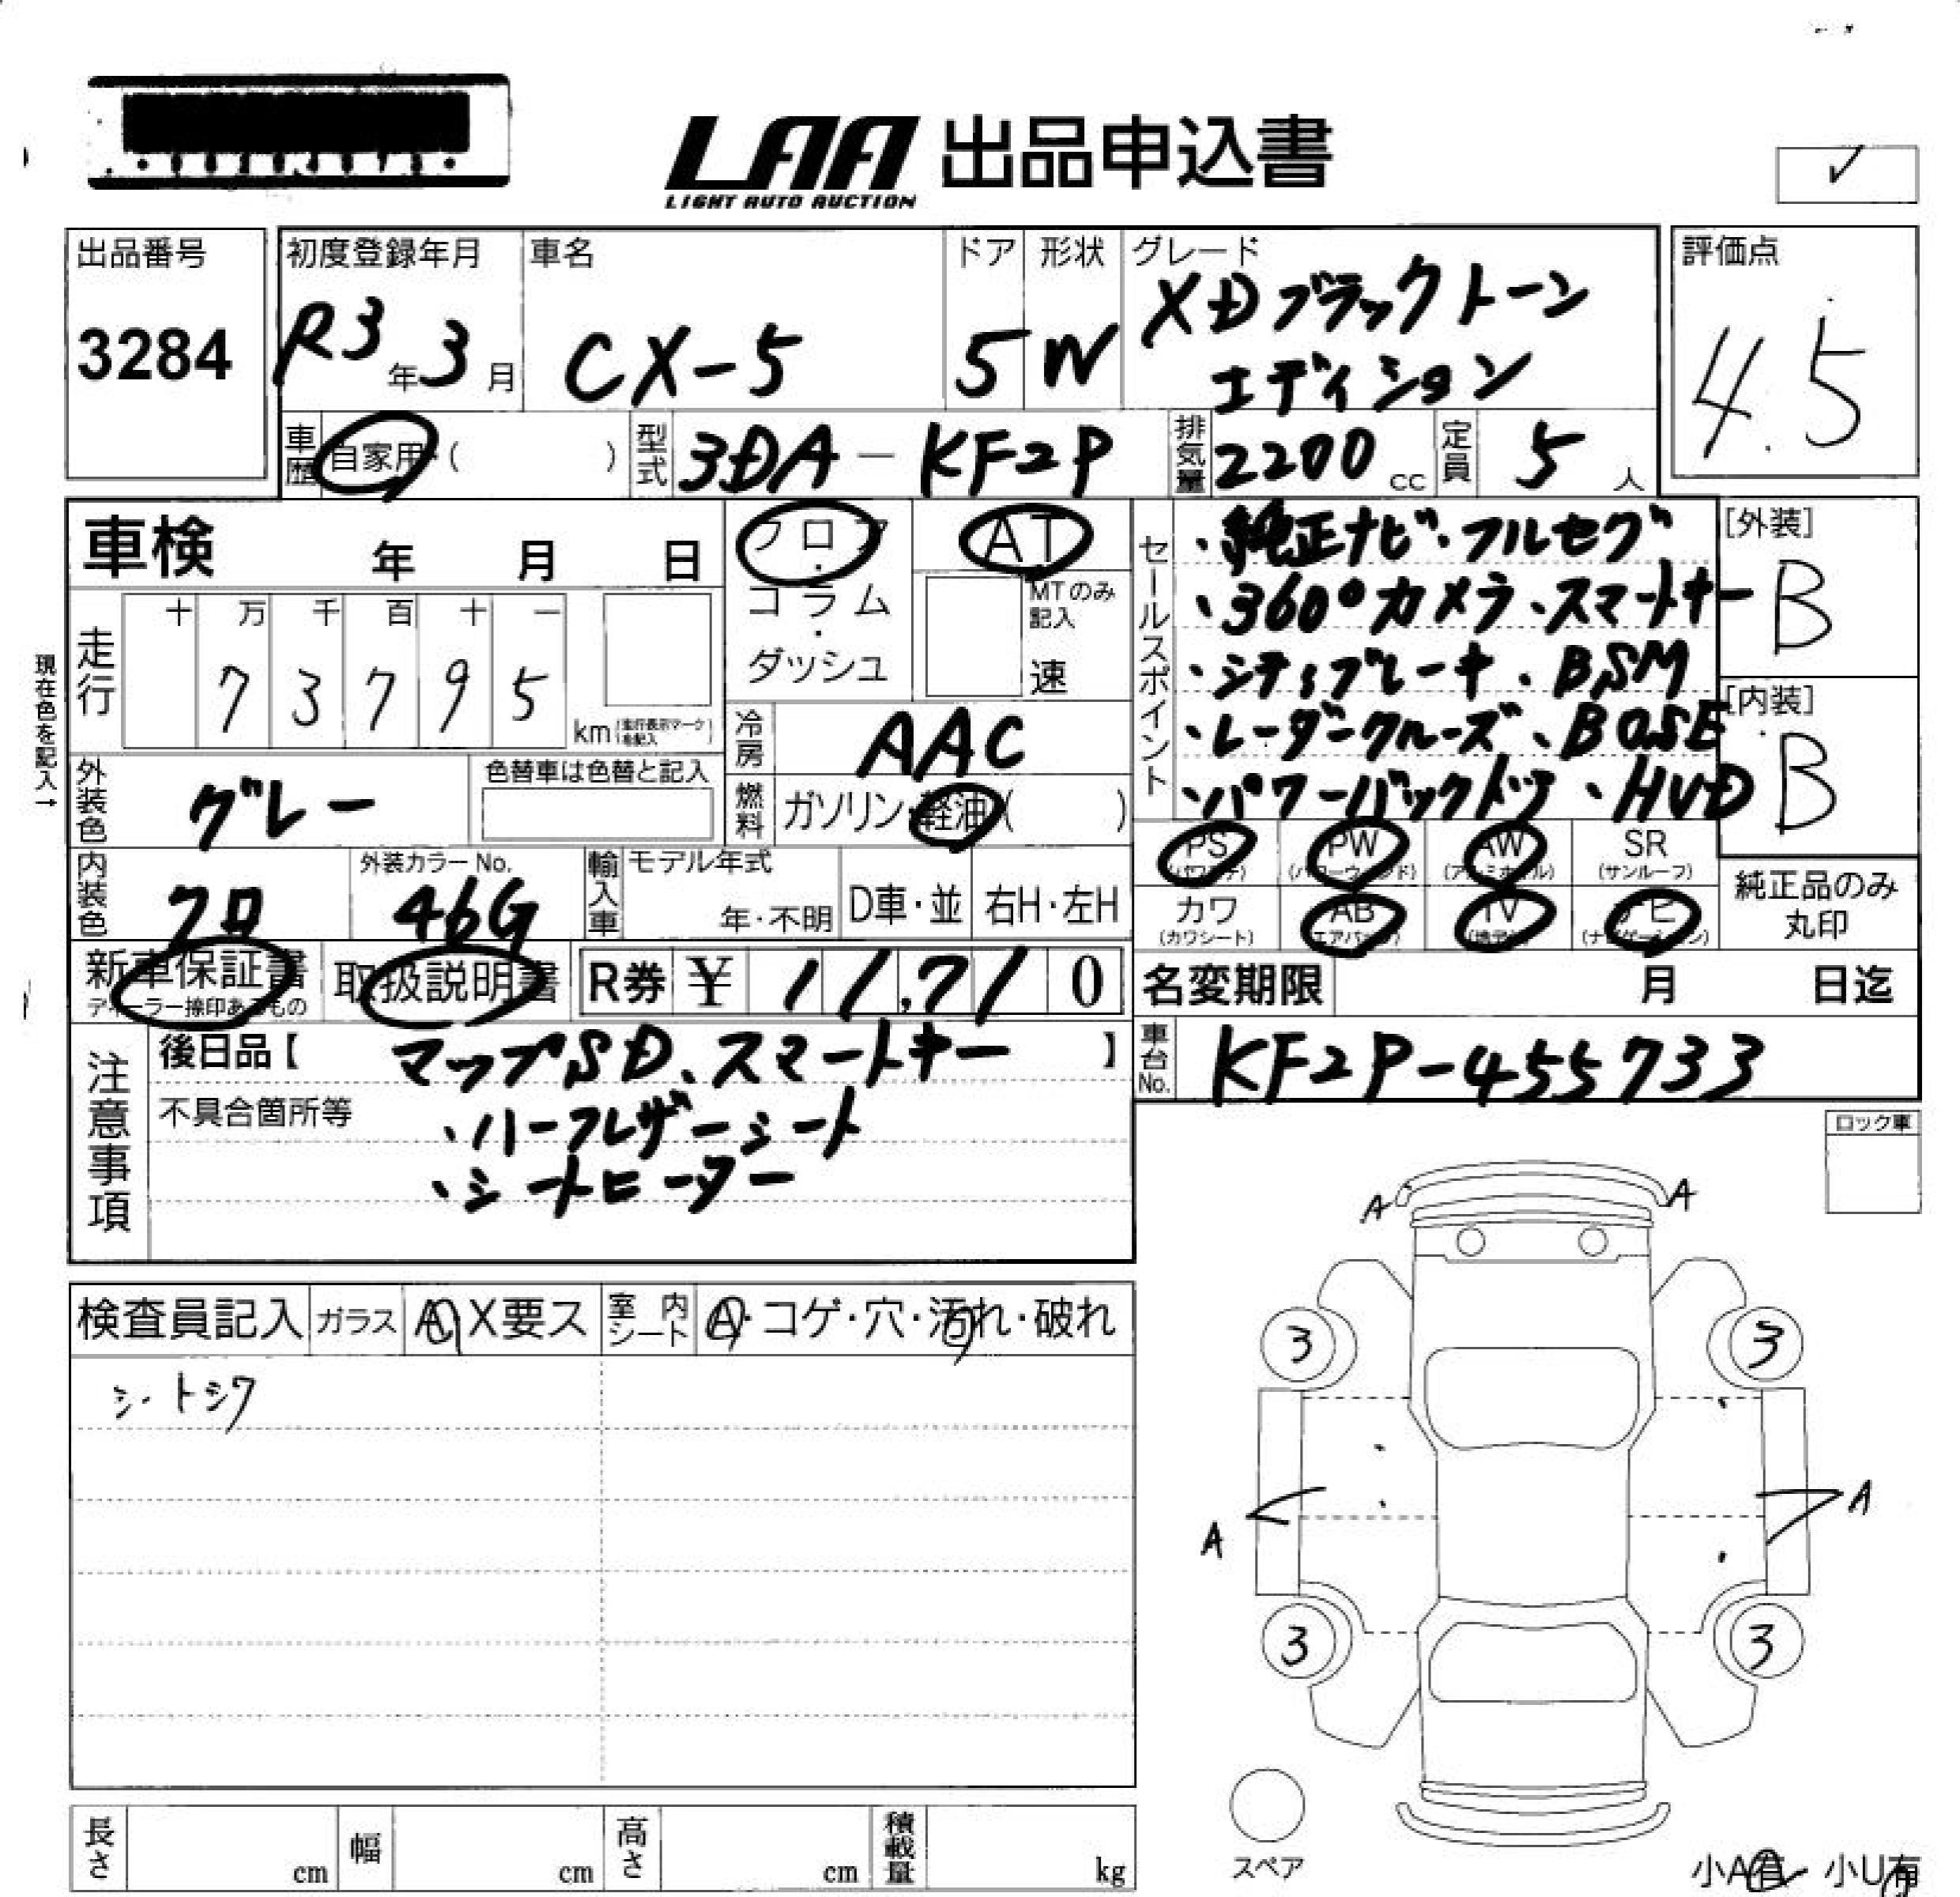 LAA 出品申込書
LIGHT AUTO AUCTION
出品番号
3284
初度登録年月
R3年3月
車名
CX-5
ドア
5
形状
W
グレード
XDブラックトーン
エディション
評価点
4.5
車歴 自家用・( )
型式 3DA-KF2P
排気量 2200cc
定員 5人
車検 年 月 日
フロア・コラム・ダッシュ
AT
MTのみ記入
速
セールスポイント
・純正ナビ・フルセグ
・360°カメラ・スマートキー
・シティブレーキ・BSM
・レーダークルーズ・BOSE
・パワーバックドア・HUD
[外装]
B
[内装]
B
現在色を記入→
走行
十 万 千 百 十 一
7 3 7 9 5
km(走行表示マークを記入)
冷房 AAC
外装色 グレー
色替車は色替と記入
燃料 ガソリン・軽油( )
PS PW AW SR
(サンルーフ)
カワ AB TV ナビ
(カワシート)
純正品のみ
丸印
内装色 クロ
外装カラーNo.
46G
輸入車 モデル年式
年・不明 D車・並 右H・左H
新車保証書
ディーラー捺印あるもの
取扱説明書
R券 ¥ 11,710
名変期限 月 日迄
車台No. KF2P-455733
注意事項
後日品【 マップSD、スマートキー 】
不具合箇所等
・ハーフレザーシート
・シートヒーター
ロック車
検査員記入 ガラス A X要ス 室内シート A・コゲ・穴・汚れ・破れ
シートシワ
A A
3 3
A A
3 3
スペア
小A有 小U有
長さ cm 幅 cm 高さ cm 積載量 kg